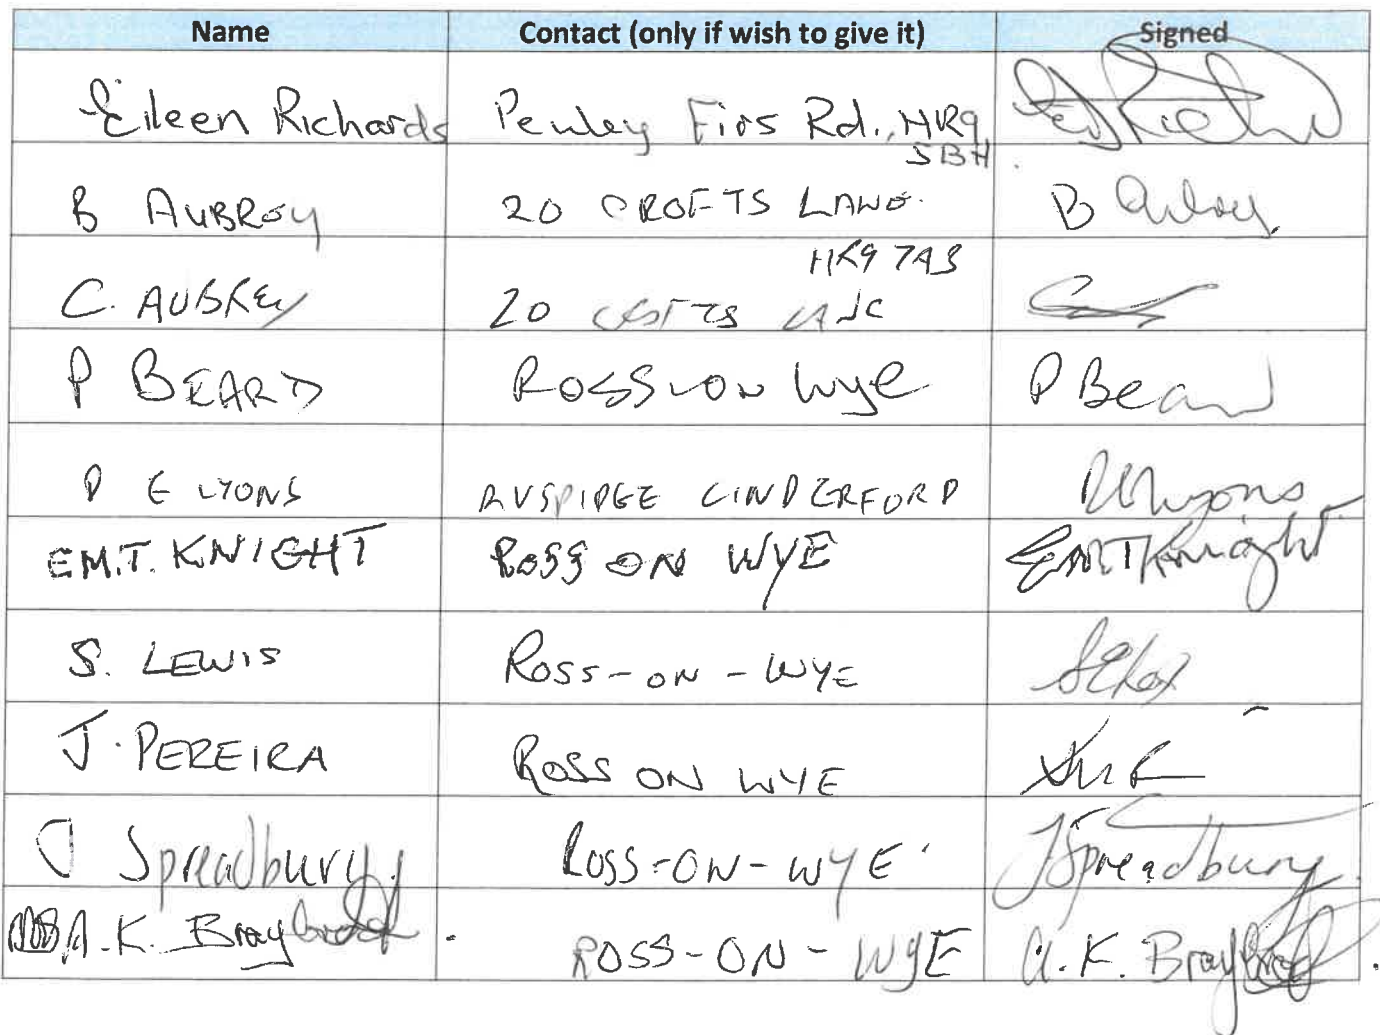 Name Contact (only if wish to give it) Signed
Eileen Richards Penley Firs Rd., HR9
5BH.
B AUBREY 20 CROFTS LANE. B Aubrey
HR9 7AB
C. AUBREY 20
P BEARD Ross on Wye P Beard
P E LYONS CINDERFORD PELyons
E.M.T. KNIGHT ROSS ON WYE EMTKnight
S. LEWIS ROSS-ON-WYE
J. PEREIRA ROSS ON WYE
J Spreadbury ROSS-ON-WYE JSpreadbury.
A.K. Braybrook ROSS-ON-WYE A.K. Braybrook.